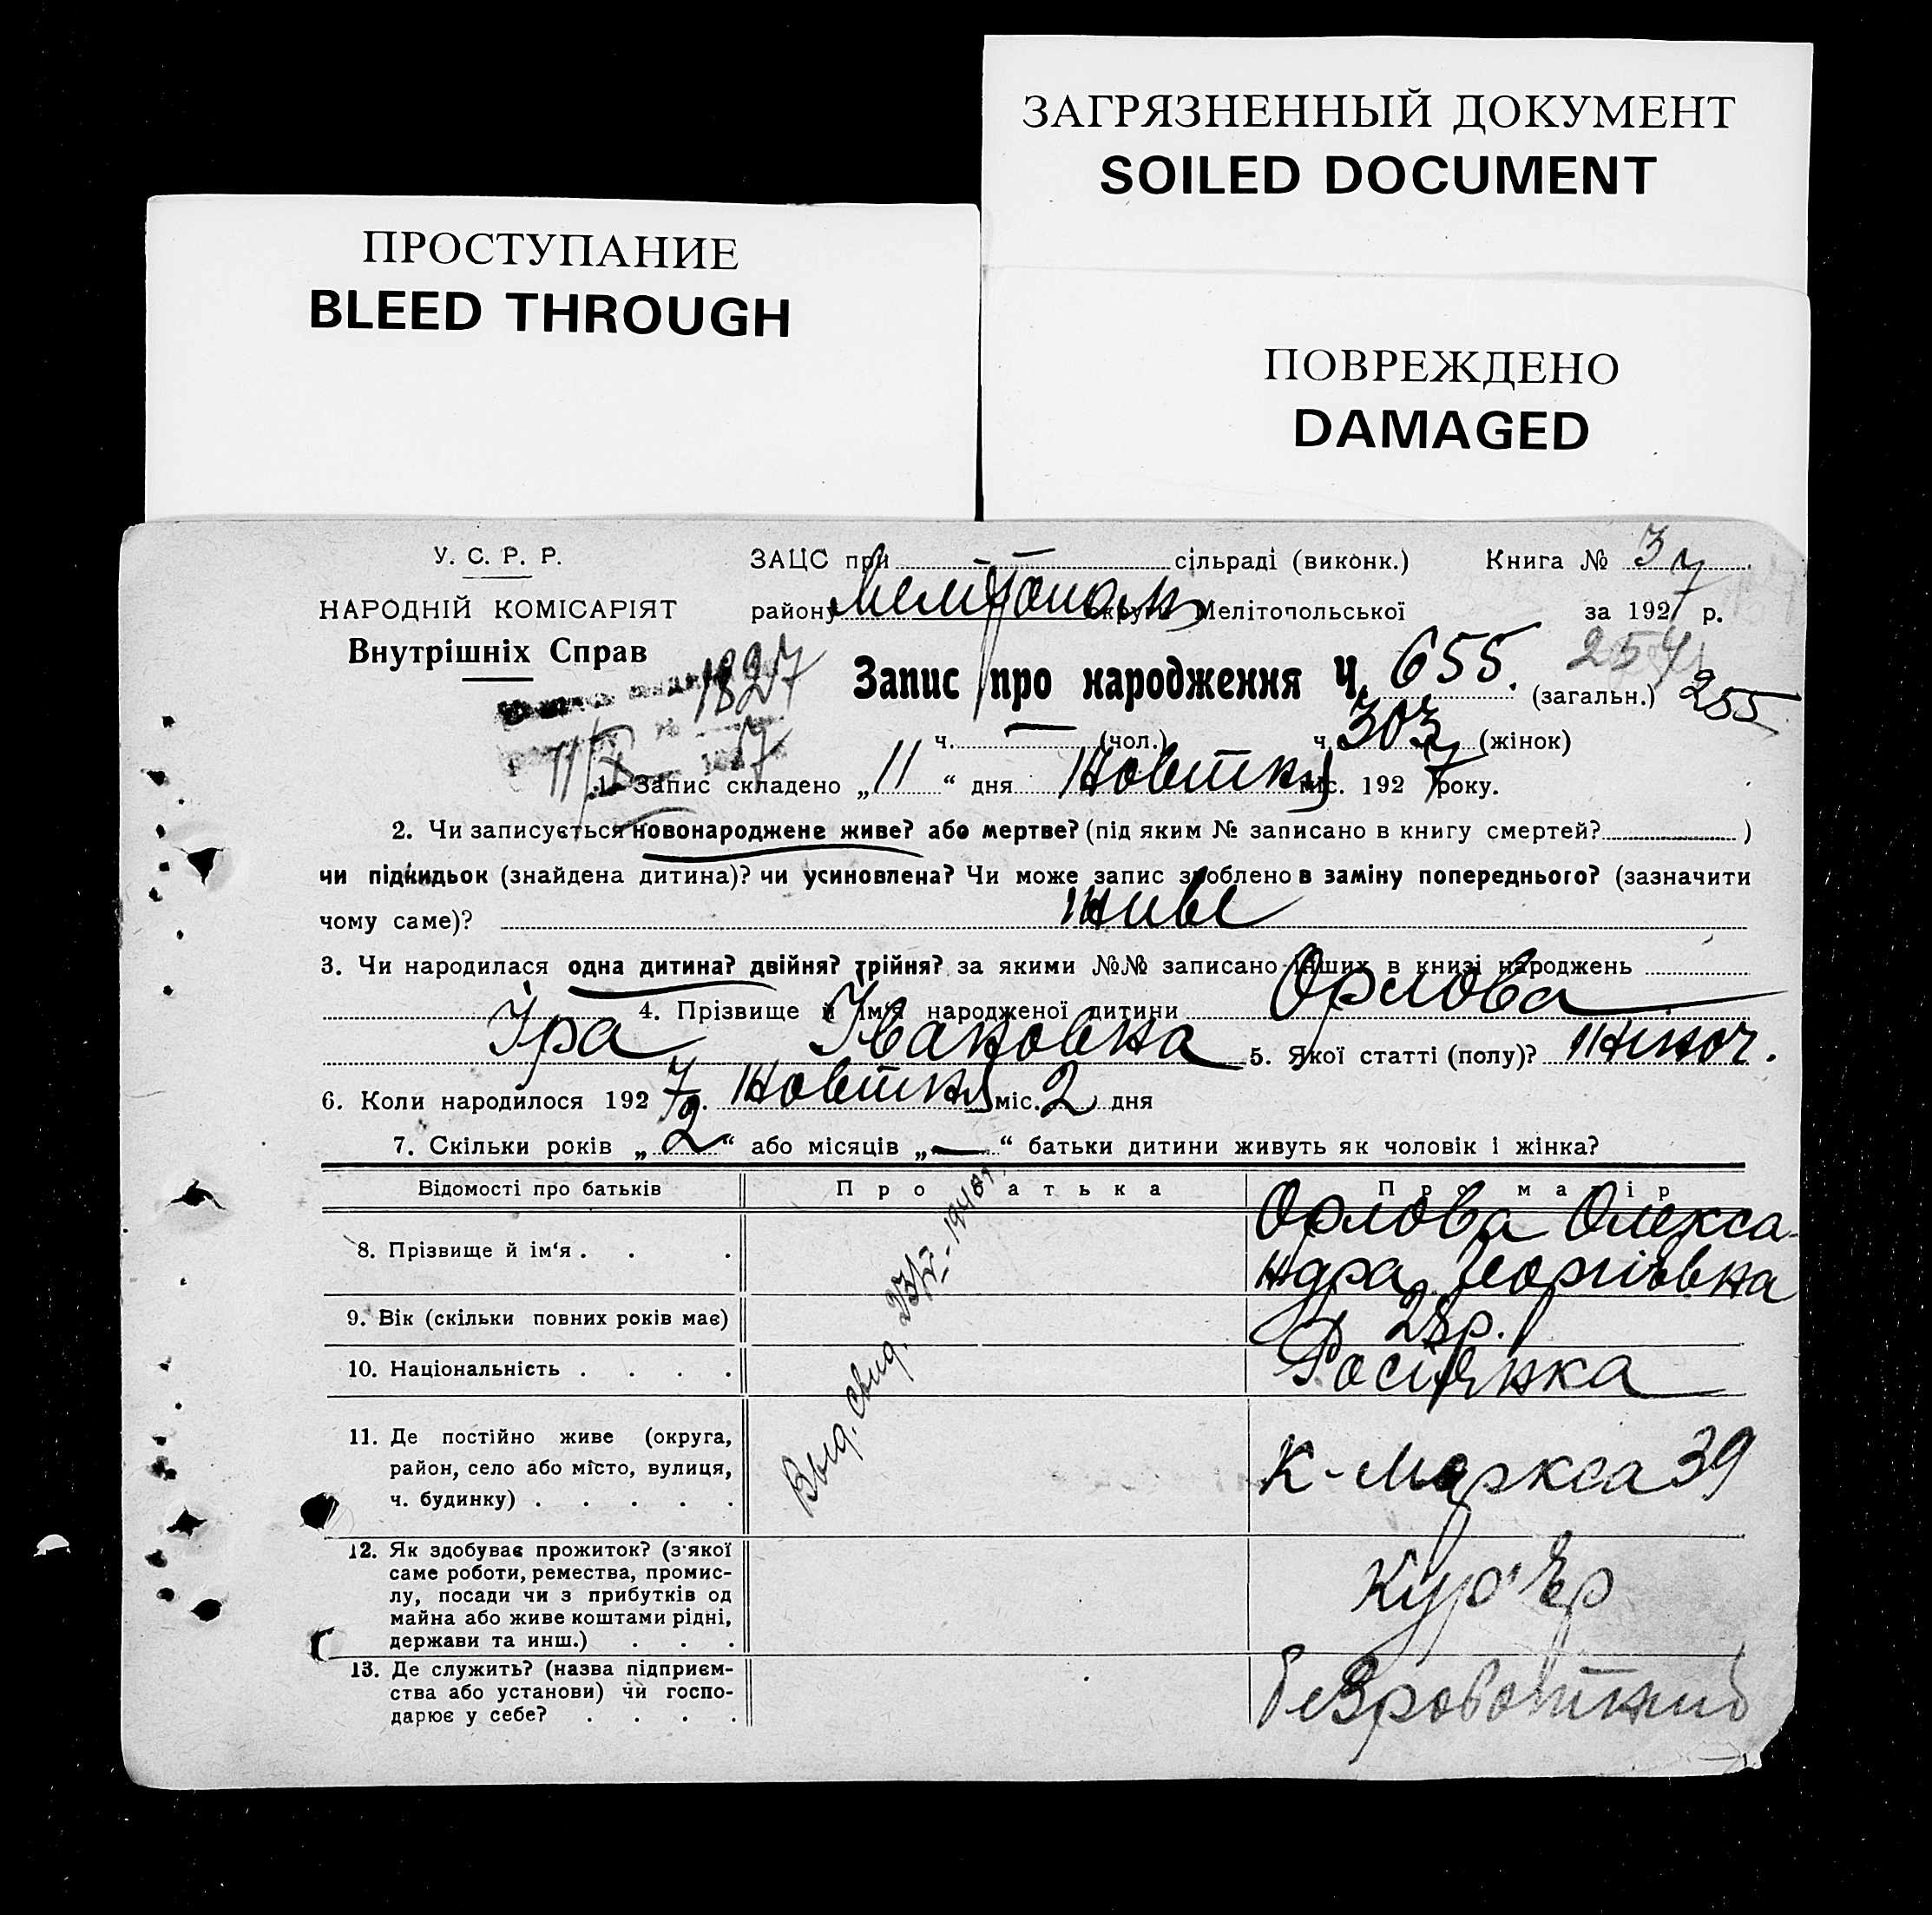 ЗАГРЯЗНЕННЫЙ ДОКУМЕНТ
SOILED DOCUMENT
ПРОСТУПАНИЕ
BLEED THROUGH
ПОВРЕЖДЕНО
DAMAGED
У. С. Р. Р.
НАРОДНІЙ КОМІСАРІЯТ
Внутрішніх Справ
ЗАЦС при — сільраді (виконк.) Книга № 3
району округи Мелітопольської за 1927 р.
1827
Запис про народження Ч. 655. (загальн.) 254 255
ч. — (чол.) ч. 303 (жінок)
1. Запис складено „11“ дня Жовтня міс. 1927 року.
2. Чи записується новонароджене живе? або мертве? (під яким № записано в книгу смертей? )
чи підкидьок (знайдена дитина)? чи усиновлена? Чи може запис зроблено в заміну попереднього? (зазначити
чому саме)? живе
3. Чи народилася одна дитина? двійня? трійня? за якими №№ записано інших в книзі народжень
4. Прізвище й ім'я народженої дитини Орлова
Іра Івановна 5. Якої статті (полу)? жіноч.
6. Коли народилося 1927 р. Жовтня міс. 2 дня
7. Скільки років „2“ або місяців „—“ батьки дитини живуть як чоловік і жінка?
Відомості про батьків Про батька Про матір
8. Прізвище й ім'я . . . Орлова Олекса-
ндра Георгіївна
9. Вік (скільки повних років має) 28 р.
10. Національність . . . . Росіянка
11. Де постійно живе (округа,
район, село або місто, вулиця,
ч. будинку) . . . . . К-Маркса 39
12. Як здобуває прожиток? (з'якої
саме роботи, ремества, промис-
лу, посади чи з прибутків од
майна або живе коштами рідні,
держави та инш.) . . . Кур'єр
13. Де служить? (назва підприєм-
ства або установи) чи госпо-
дарює у себе? . . . . безроботний
Выд. свид.